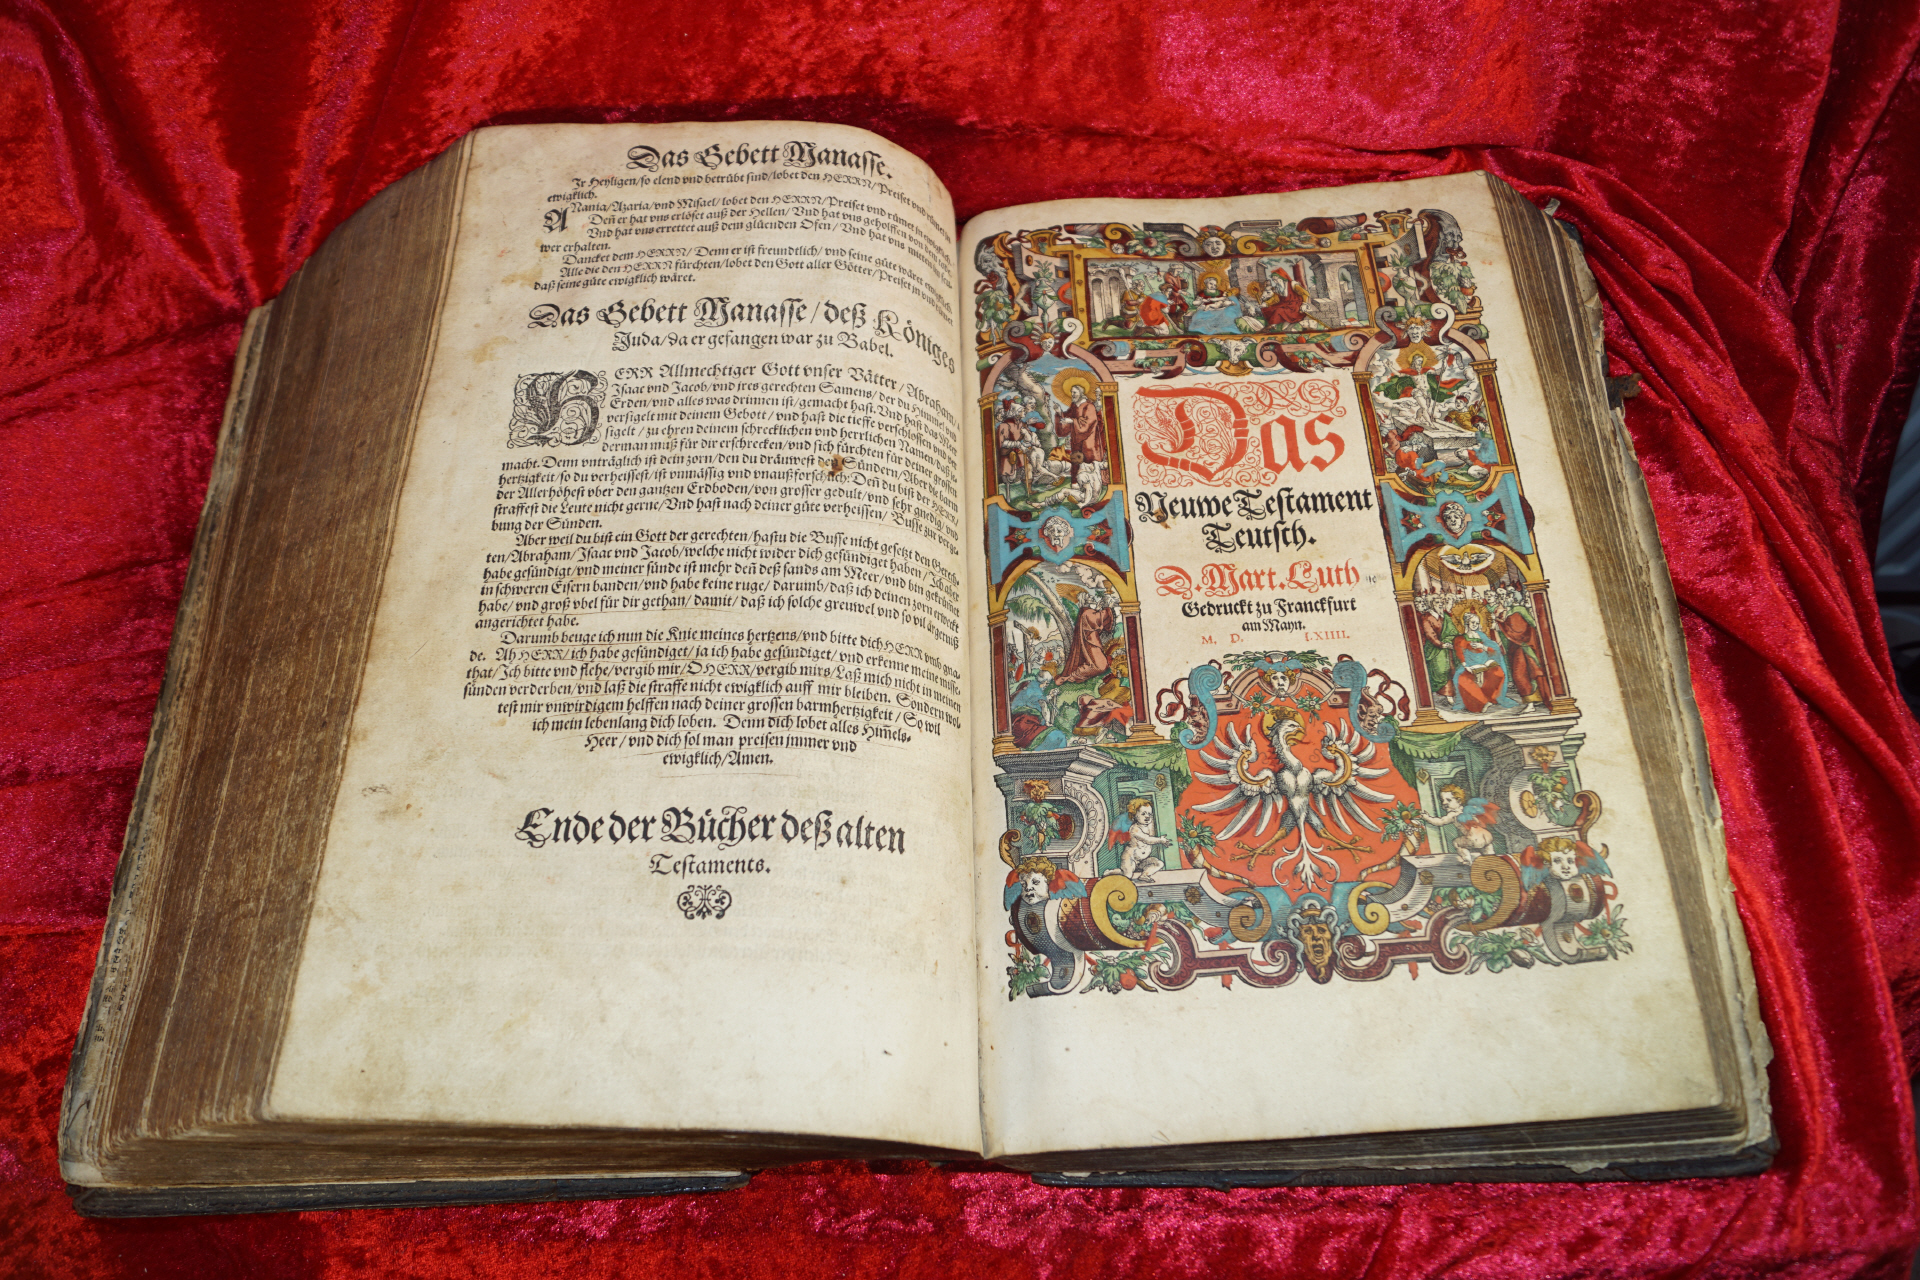 Das Gebett Manasse.
Ir Heyligen/so elend vnd betrübt sind/lobet den HERRN/Preiset vnd rümet jn
ewigklich.
ANania/Azaria/vnd Misael/lobet den HERRN/Preiset vnd rümet jn ewigklich.
Deñ er hat vns erlöset auß der Hellen/Vnd hat vns geholffen von dem tode.
Vnd hat vns errettet auß dem glüenden Ofen/Vnd hat vns mitten im feu-
wer erhalten.
Dancket dem HERRN/Denn er ist freundtlich/vnd seine güte wäret ewigklich.
Alle die den HERRN fürchten/lobet den Gott aller Götter/Preiset jn vnd rümet
daß seine güte ewigklich wäret.
Das Gebett Manasse/deß Königes
Juda/da er gefangen war zu Babel.
HERR Allmechtiger Gott vnser Vätter/Abraham/
Isaac vnd Jacob/vnd jres gerechten Samens/der du Himmel vnd
Erden/vnd alles was drinnen ist/gemacht hast. Vnd hast das Meer
versigelt mit deinem Gebott/vnd hast die tieffe verschlossen vnd ver
sigelt/zu ehren deinem schrecklichen vnd herrlichen Namen/daß je-
derman muß für dir erschrecken/vnd sich fürchten für deiner grossen
macht. Denn vnträglich ist dein zorn/den du dräuwest den Sündern/Aber die barm
hertzigkeit/so du verheissest/ist vnmässig vnd vnaußforschlich: Deñ du bist der HERR/
der Allerhöhest vber den gantzen Erdboden/von grosser gedult/vnd sehr gnedig/vnd
straffest die Leute nicht gerne/Vnd hast nach deiner güte verheissen/Busse zur verge-
bung der Sünden.
Aber weil du bist ein Gott der gerechten/hastu die Busse nicht gesetzt den Gerech-
ten/Abraham/Isaac vnd Jacob/welche nicht wider dich gesündiget haben/Ich aber
habe gesündigt/vnd meiner sünde ist mehr deñ deß sands am Meer/vnd bin gekrümmet
in schweren Eisern banden/vnd habe keine ruge/darumb/daß ich deinen zorn erweckt
habe/vnd groß vbel für dir gethan/damit/daß ich solche greuwel vnd so vil ärgernuß
angerichtet habe.
Darumb beuge ich nun die Knie meines hertzens/vnd bitte dich HERR vmb gna-
de. Ah HERR/ich habe gesündiget/ja ich habe gesündiget/vnd erkenne meine misse-
that/Ich bitte vnd flehe/vergib mir/O HERR/vergib mirs/Laß mich nicht in meinen
sünden verderben/vnd laß die straffe nicht ewigklich auff mir bleiben. Sondern wol-
test mir vnwirdigem helffen nach deiner grossen barmhertzigkeit/So wil
ich mein lebenlang dich loben. Denn dich lobet alles Him̃els-
Heer/vnd dich sol man preisen jmmer vnd
ewigklich/Amen.
Ende der Bücher deß alten
Testaments.
Das
Neuwe Testament
Teutsch.
D. Mart. Luth
Gedruckt zu Franckfurt
am Mayn.
M. D. LXIIII.